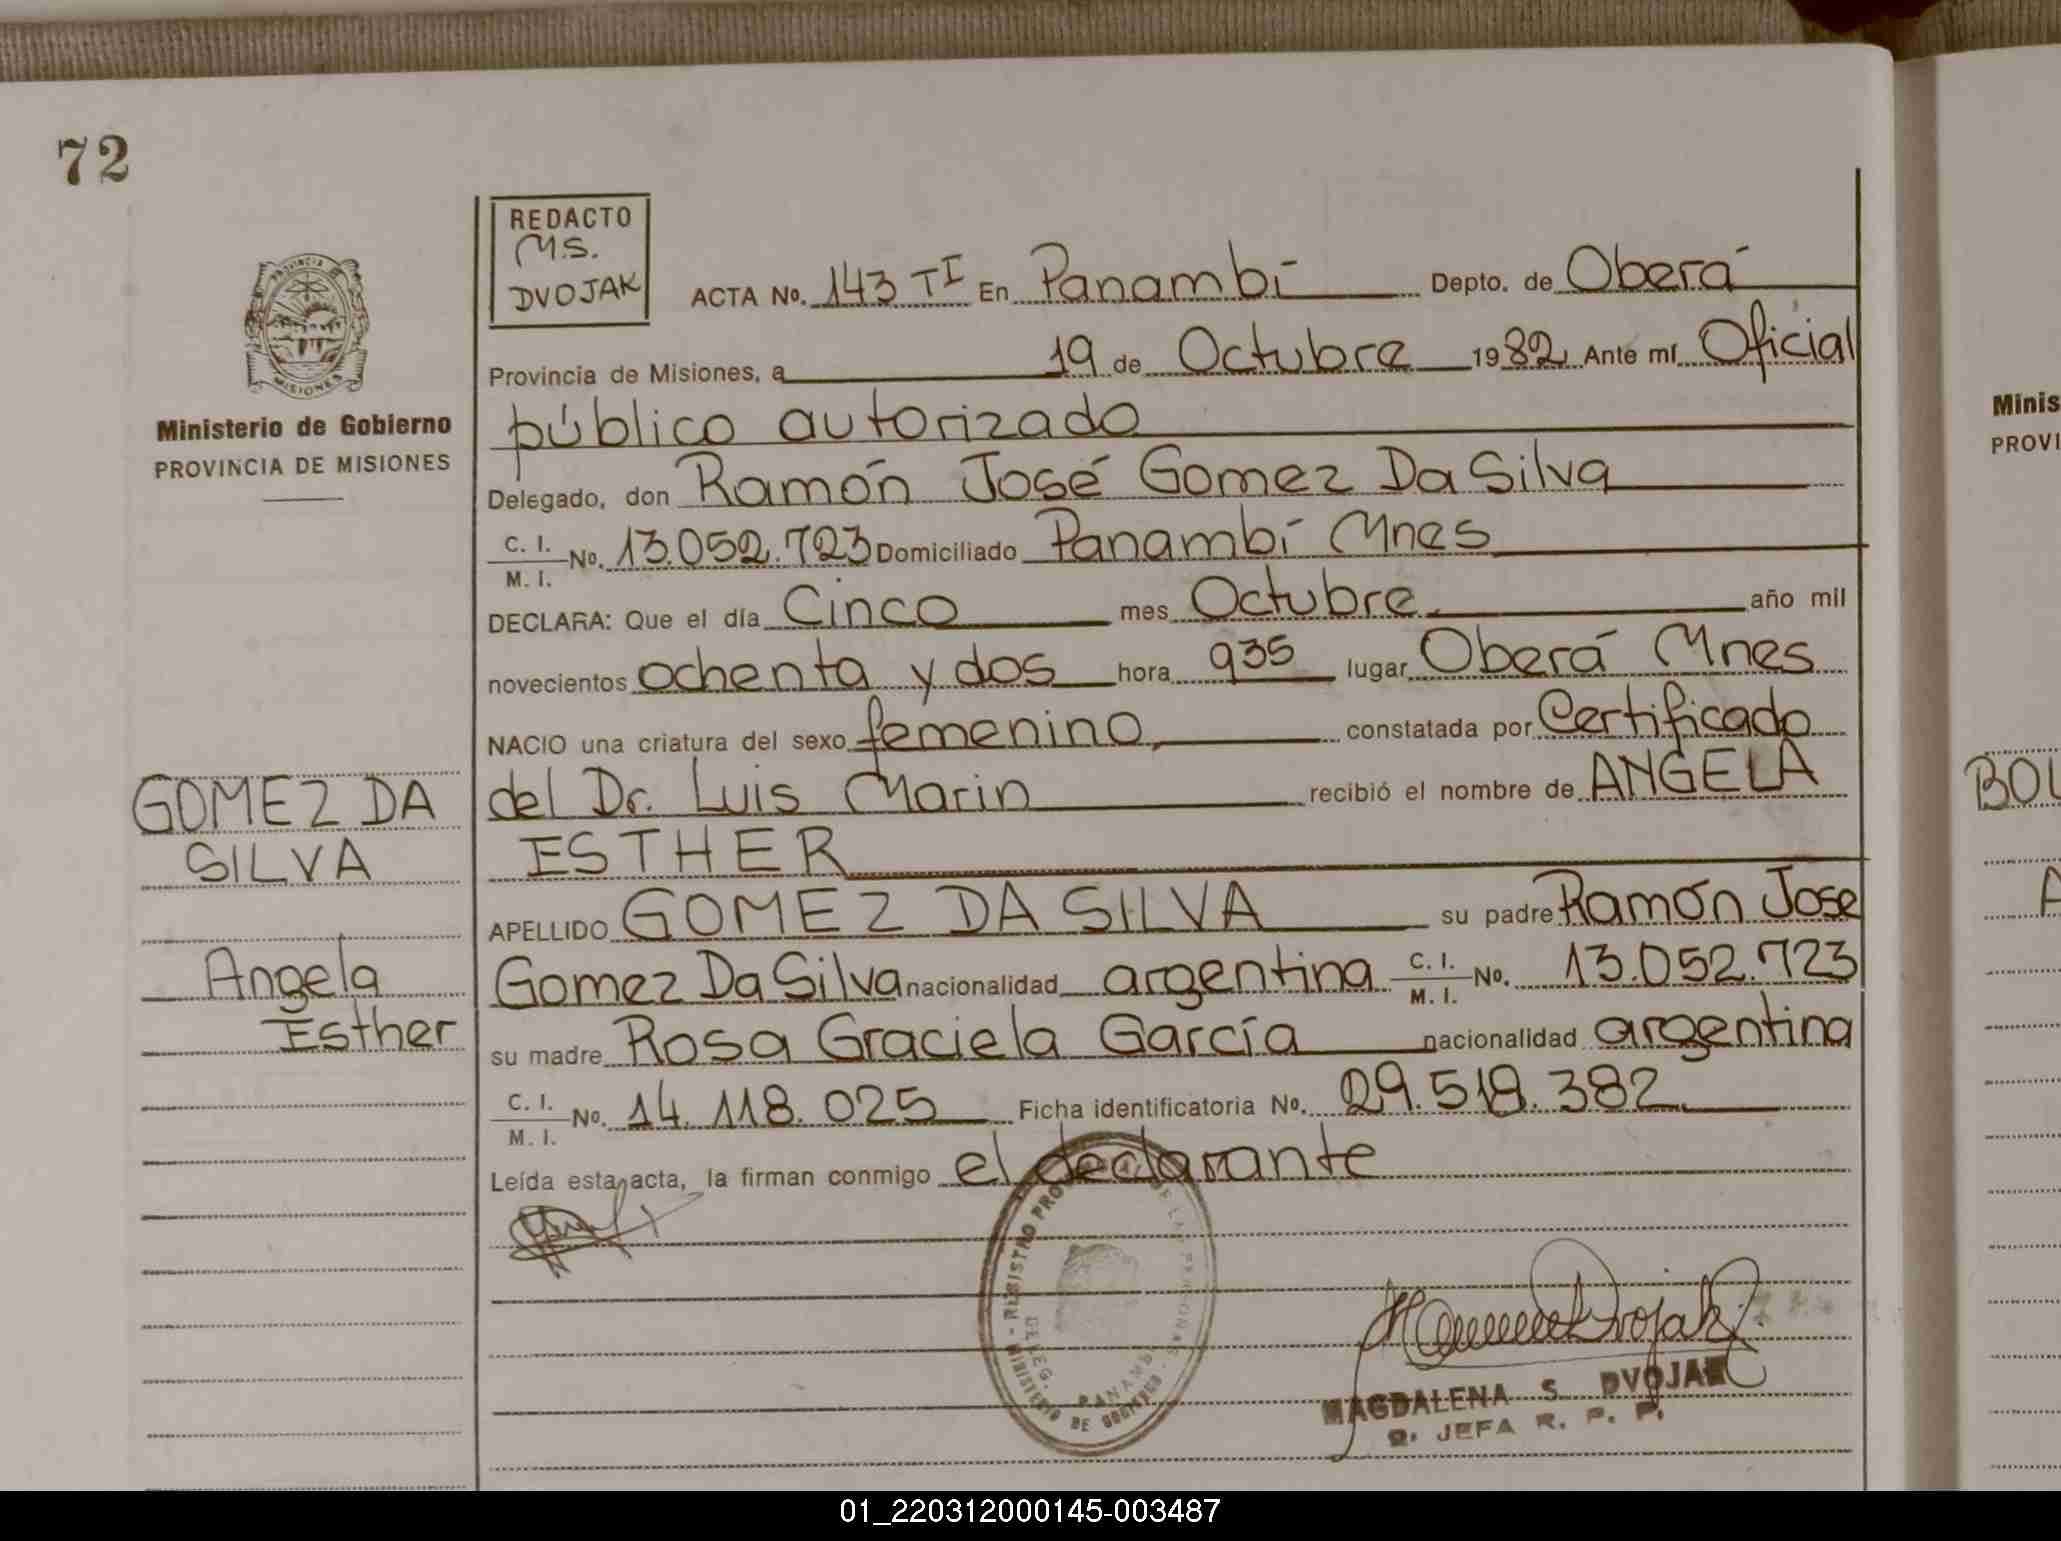 72
REDACTO
M.S.
DVOJAK
PROVINCIA DE
MISIONES
Ministerio de Gobierno
PROVINCIA DE MISIONES
GOMEZ DA
SILVA
Angela
Esther
ACTA No. 143 TI En Panambí Depto. de Oberá
Provincia de Misiones, a 19 de Octubre 1982 Ante mí Oficial
público autorizado
Delegado, don Ramón José Gomez Da Silva
C. I. / M. I. No. 13.052.723 Domiciliado Panambí Mnes
DECLARA: Que el día Cinco mes Octubre. año mil
novecientos ochenta y dos hora 935 lugar Oberá Mnes
NACIO una criatura del sexo femenino, constatada por Certificado
del Dr. Luis Marin recibió el nombre de ANGELA
ESTHER
APELLIDO GOMEZ DA SILVA su padre Ramón Jose
Gomez Da Silva nacionalidad argentina C. I. / M. I. No. 13.052.723
su madre Rosa Graciela García nacionalidad argentina
C. I. / M. I. No. 14.118.025 Ficha identificatoria No. 29.518.382
Leída esta acta, la firman conmigo el declarante
MINISTERIO DE GOBIERNO - REGISTRO PROVINCIAL DE LAS PERSONAS
DELEG. PANAMBI
Dvojak
MAGDALENA S. DVOJAK
JEFA R. P. P.
Minis
PROVI
BOU
A
01_220312000145-003487